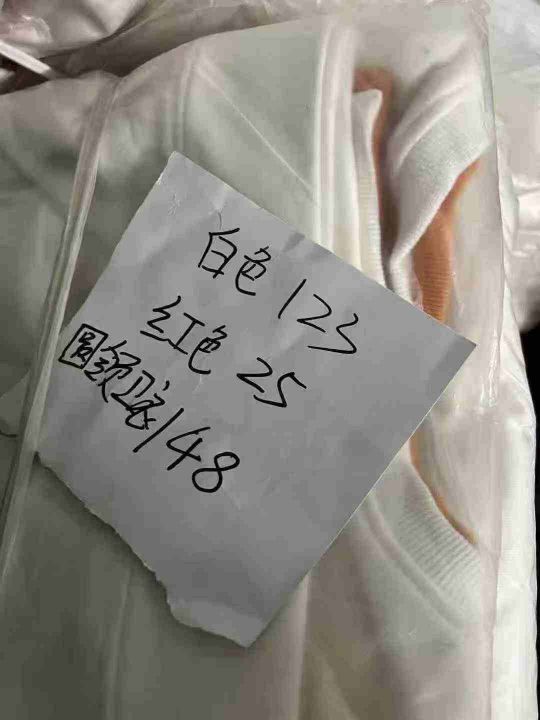 白色 123
红色 25
圆领卫衣 148